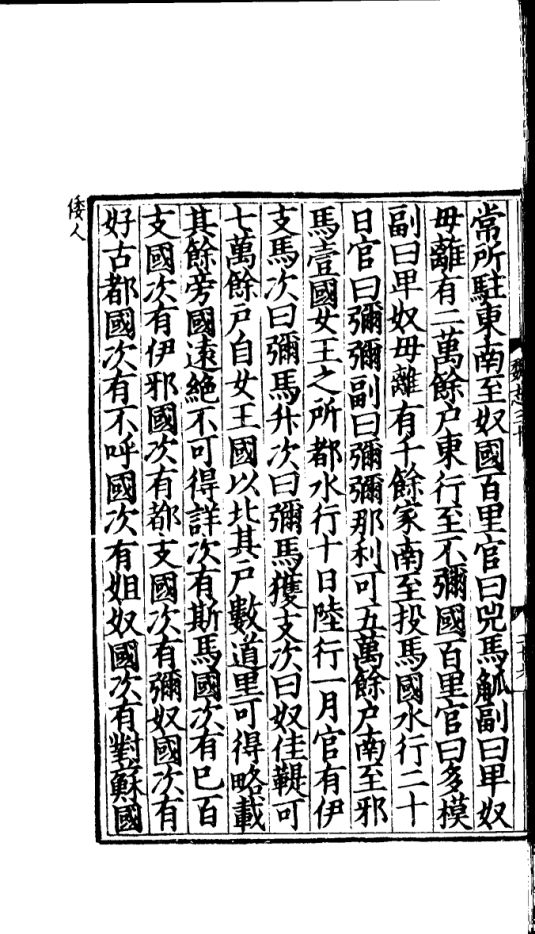 常所駐東南至奴國百里官曰兕馬觚副曰卑奴
毋離有二萬餘户東行至不彌國百里官曰多模
副曰卑奴毋離有千餘家南至投馬國水行二十
日官曰彌彌副曰彌彌那利可五萬餘户南至邪
馬壹國女王之所都水行十日陸行一月官有伊
支馬次曰彌馬升次曰彌馬獲支次曰奴佳鞮可
七萬餘户自女王國以北其户數道里可得略載
其餘旁國遠絶不可得詳次有斯馬國次有已百
支國次有伊邪國次有都支國次有彌奴國次有
好古都國次有不呼國次有姐奴國次有對蘇國
倭人